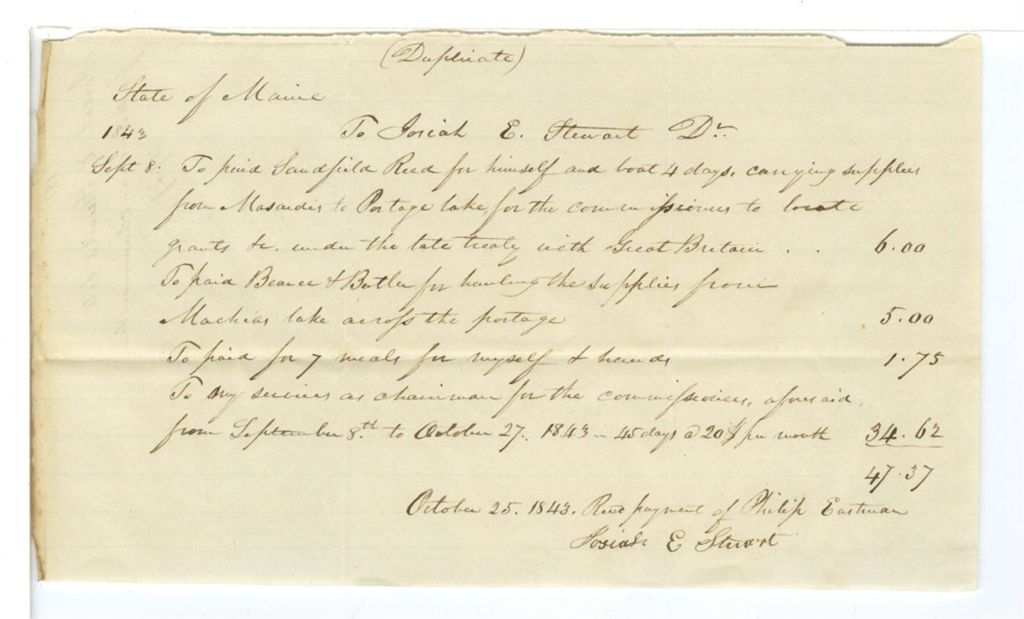 (Duplicate)
State of Maine
1843 To Josiah E. Stewart Dr.
Sept 8. To paid Sandfield Reed for himself and boat 4 days, carrying supplies
from Masardis to Portage lake, for the commissioners to locate
grants &c. under the late treaty with Great Britain . . 6.00
To paid Beance & Butler for hauling the supplies from
Machias lake across the portage 5.00
To paid for 7 meals for myself & hands 1.75
To my services as chainman for the commissioners, aforesaid,
from September 8th. to October 27. 1843 45 days @ 20$ per month 34.62
47.37
October 25. 1843. Recd payment of Philip Eastman
Josiah E Stuart